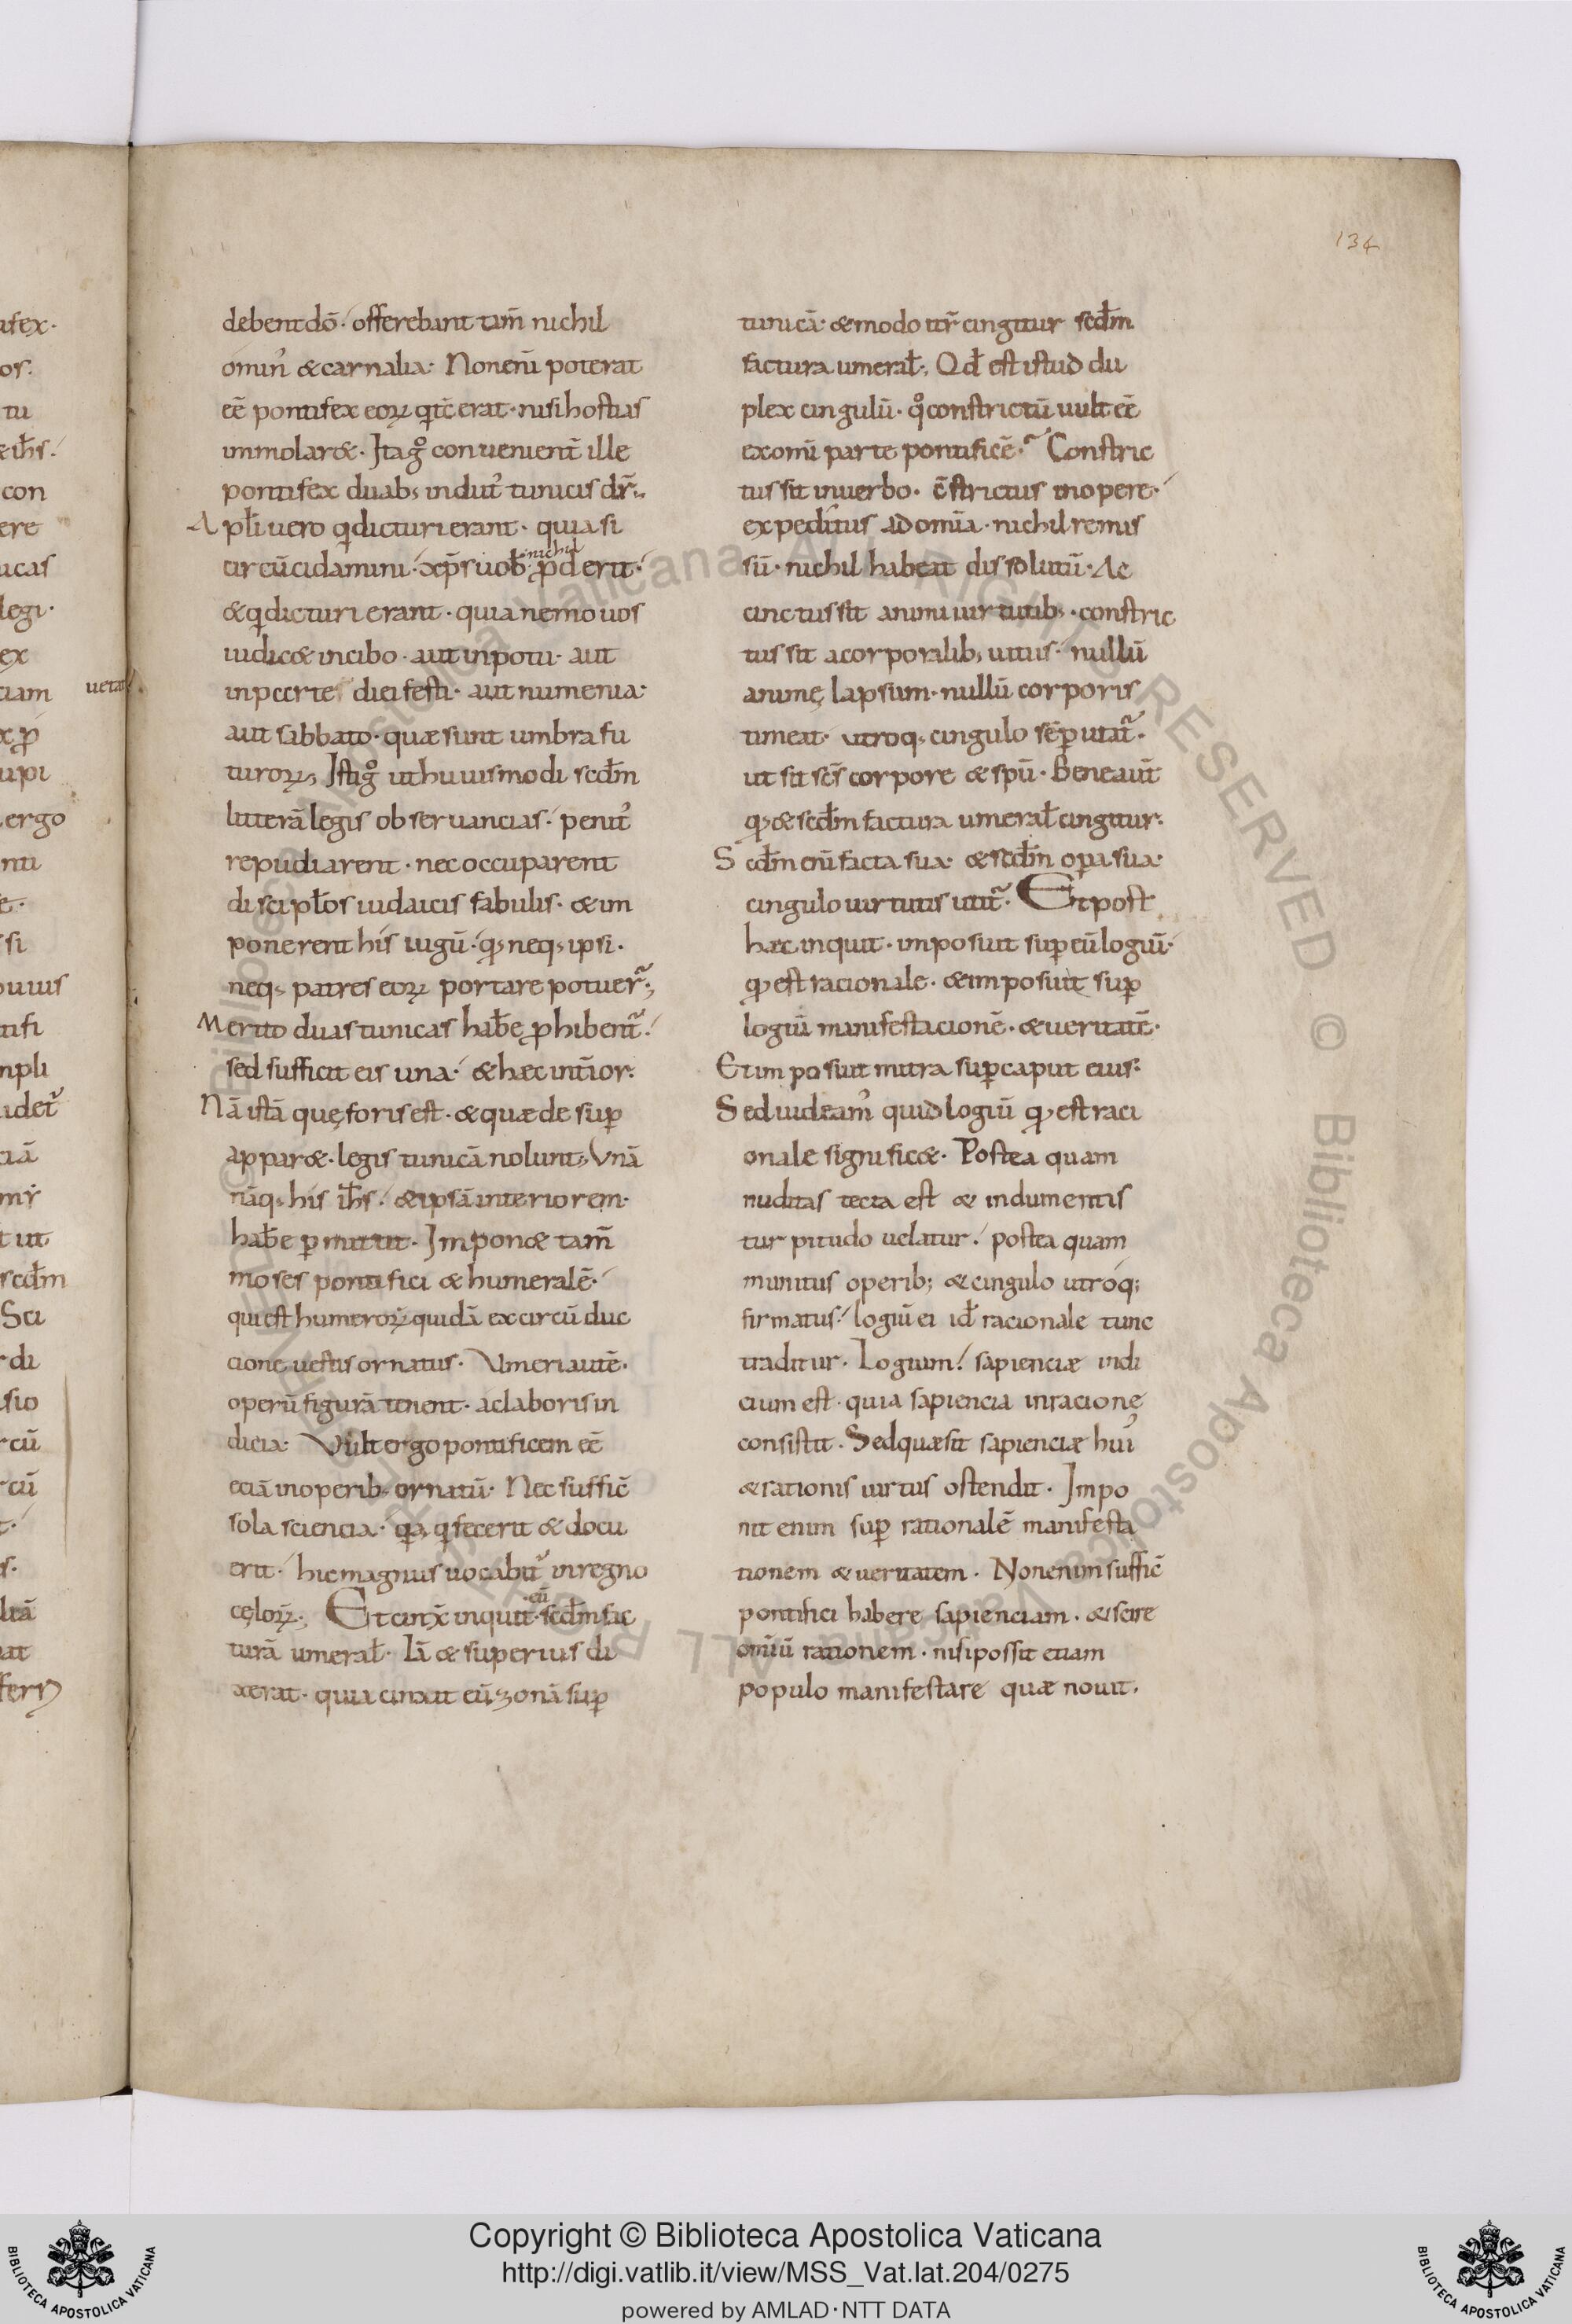 134
debent dō· offerebant tam̄ nichil
omin᾽ & carnalia· Non eni poterat
eē pontifex eoꝝ q̇ tc̄ erat· nisi hostias
immolar&· Itaq̊ convenient̄ ille
pontifex duab; indut᾽ tunicis dr̄·
Apłi uero q̇ dicturi erant· quia si
circūcidamini· xp̄s uob̄ nichil ꝓderit·
& q̇ dicturi erant· quia nemo uos
iudic& in cibo· aut in potu· aut
in parte diei festi· aut numenia·
aut sabbato· quæ sunt umbra fu
turoꝝ; Isti g̊ ut huiusmodi scdm̄
litterā legis obseruancias· penit᾽
repudiarent· nec occuparent
discipłos iudaicis fabulis· & im
ponerent his iugū· qđ neq; ipsi·
neq; patres eoꝝ portare potuer̄;
Merito duas tunicas hab̄e ꝓhibent᷑·
sed sufficit eis una· & hæc int̄ior·
Nā istā quę foris est· & quæ de suꝑ
appar&· legis tunicā nolunt; Vnā
nāq; his ih̄s· & ipsā interiorem·
hab̄e ꝑmittit· Impon& tam̄
moses pontifici & humeralē·
qui est humeroꝝ quidā ex circūduc
cione uestis ornatus· Vmeri autē·
operū figurā tenent· ac laboris in
dicia· Vult ergo pontificem eē
eciā in operib; ornatū· Nec suffic̄
sola sciencia· qa q̇ fecerit & docu
erit· hic magnus uocabit᷑ in regno
cęloꝝ; Et cinx̄ inquit· eū scdm̄ fac
turā umerał· Iā & superius di
xerat· quia cinxit eū zonā suꝑ
tunicā· & modo itr̄ cingitur scdm̄
factura umerał·, Qđ est istud du
plex cingulū· q̊ constrictū uult eē
ex omi parte pontificē· Constric
tus sit in uerbo· c̄strictus in opere·
expeditus ad omīa· nichil remis
sū· nichil habeat dissolutū· Ac
cinctus sit animi uirtutib;· constric
tus sit a corporalib; uitiis· nullū
animę lapsum· nullū corporis
timeat· utroq; cingulo sēꝑ utat᷑·
ut sit scs̄ corpore & spū· Bene aut̄
qđ & scdm̄ factura umerał cingitur·
Scdm̄ eni facta sua· & scdm̄ oꝑa sua·
cingulo uirtutis utit᷑· Et post
hæc inquit· imposuit suꝑ eū logiū·
qđ est racionale· & imposuit suꝑ
logiū manifestacionē· & ueritatē·
Et imposuit mitra suꝑ caput eius·
Sed uideam᾽ quid logiū qđ est raci
onale signific&· Postea quam
nuditas tecta est & indumentis
turpitudo uelatur· postea quam
munitus operib; & cingulo utroq;
firmatus· logiū ei id̄ racionale tunc
traditur· Logium· sapienciæ indi
cium est· quia sapiencia in racione
consistit· Sed quæ sit sapienciæ hui᾽
& rationis uirtus ostendit· Impo
nit enim suꝑ rationalē manifesta
tionem & ueritatem· Non enim suffic̄
pontifici habere sapienciam· & scire
omīū rationem· nisi possit etiam
populo manifestare quæ nouit·
Copyright © Biblioteca Apostolica Vaticana
http://digi.vatlib.it/view/MSS_Vat.lat.204/0275
powered by AMLAD·NTT DATA